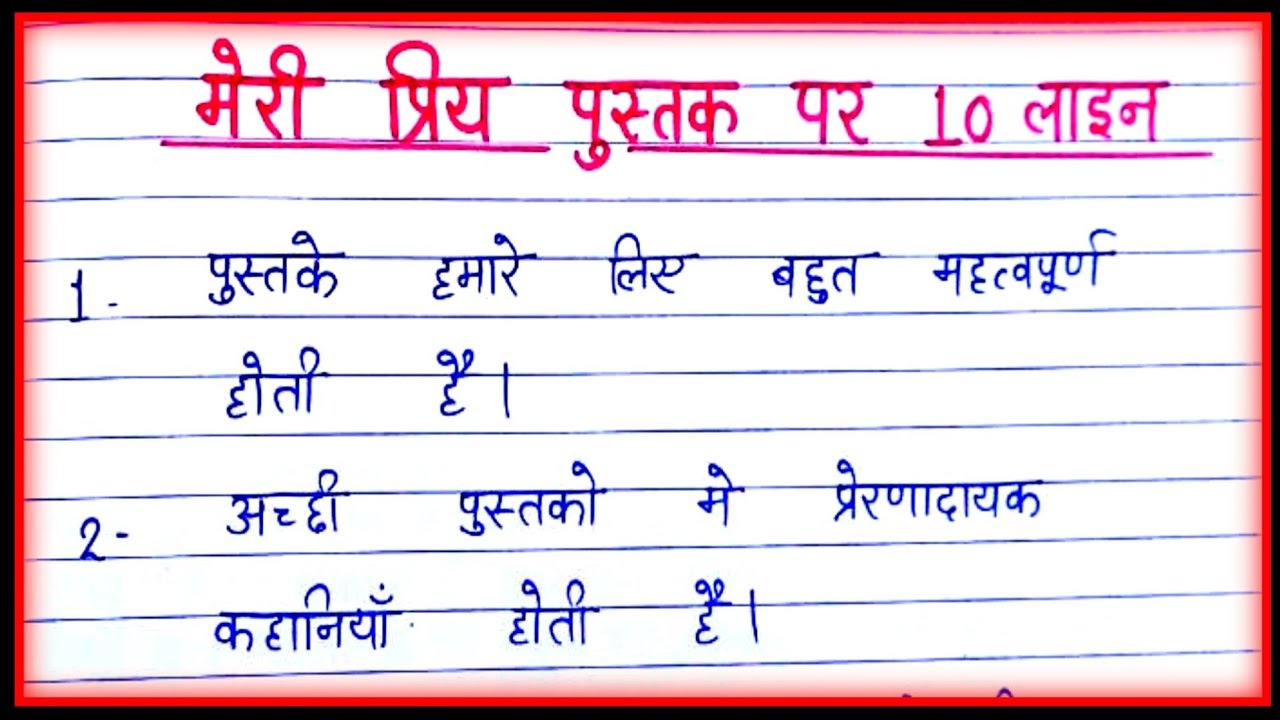 मेरी प्रिय पुस्तक पर 10 लाइन
1- पुस्तके हमारे लिए बहुत महत्वपूर्ण
होती है।
2- अच्छी पुस्तको मे प्रेरणादायक
कहानियाँ होती है।